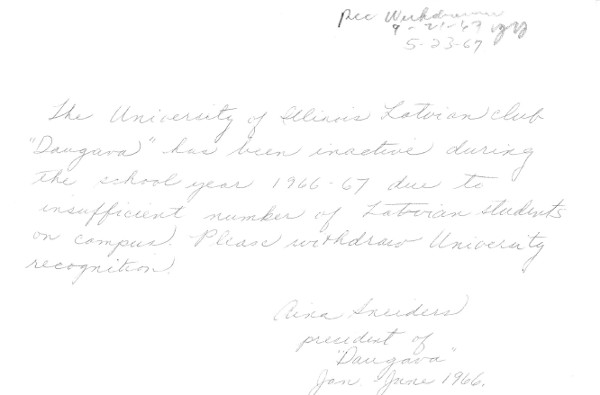 Rec Withdrawn
9-21-67
5-23-67
The University of Illinois Latvian club
"Daugava" has been inactive during
the school year 1966-67 due to
insufficient number of Latvian students
on campus. Please withdraw University
recognition.
Aina Sneiders
president of
"Daugava"
Jan - June 1966.